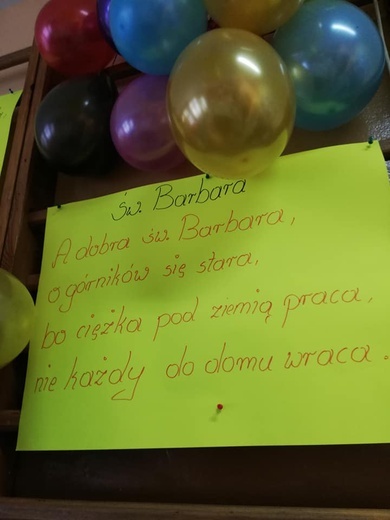 św. Barbara
A dobra św. Barbara,
o górników się stara,
bo ciężka pod ziemią praca,
nie każdy do domu wraca.